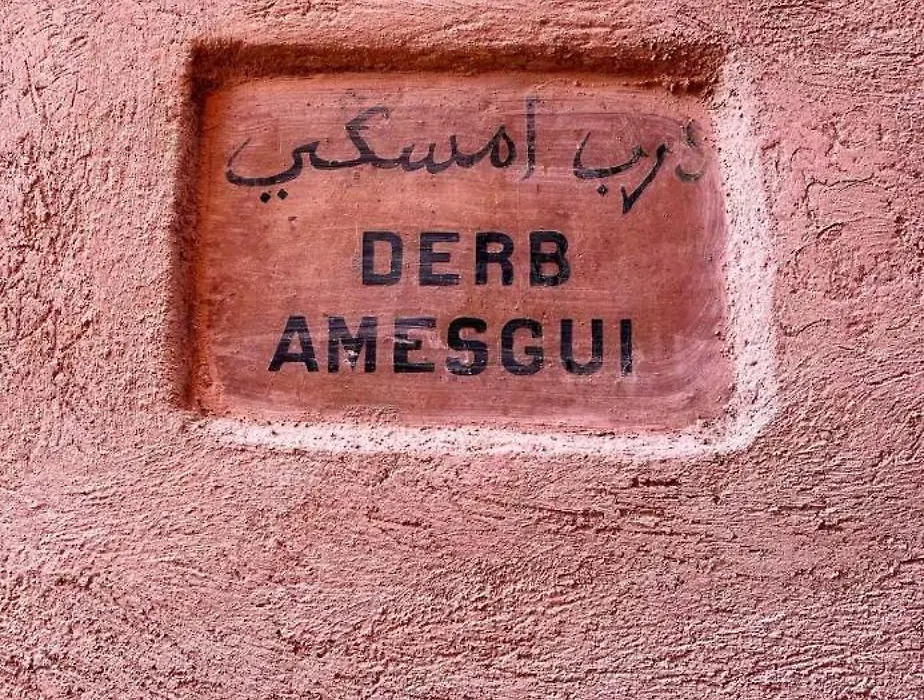 درب امسكي
DERB
AMESGUI